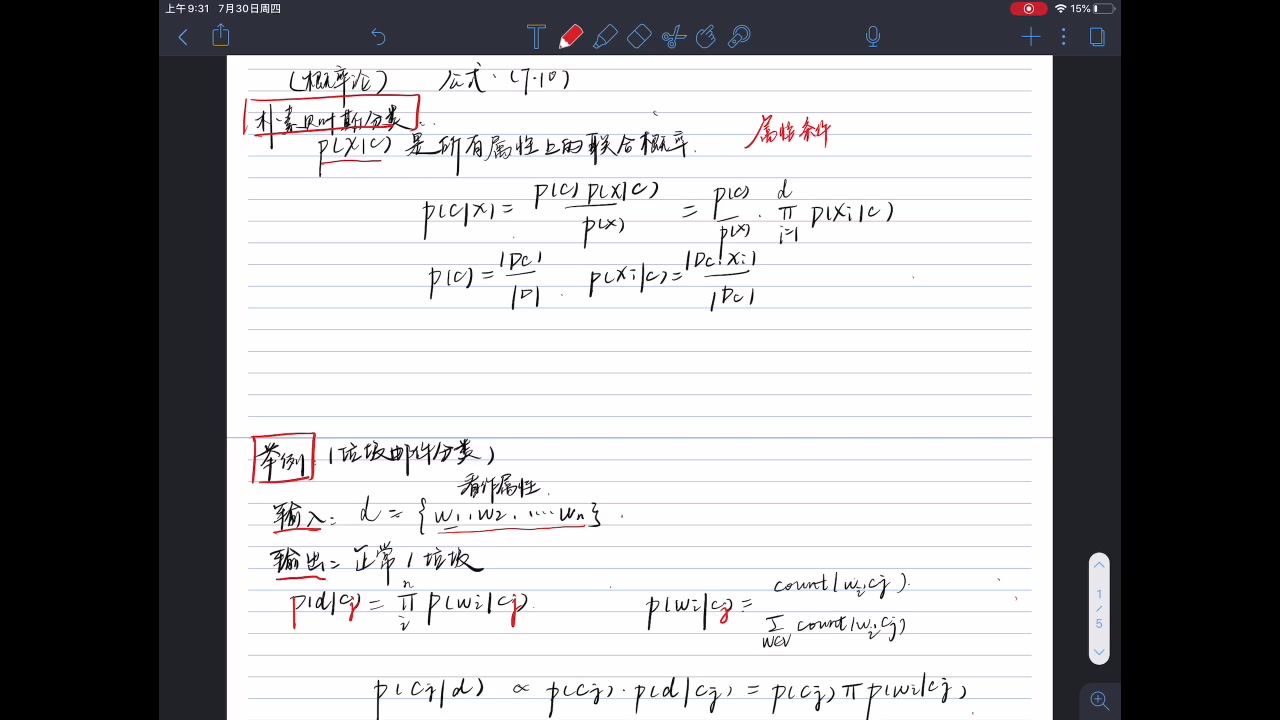 上午9:31 7月30日周四 15%
(概率论) 公式:(7.10)
朴素贝叶斯分类:
p(x|c) 是所有属性上的联合概率. 属性条件
p(c|x) = p(c) p(x|c) / p(x) = p(c) / p(x) · ∏ i=1 d p(xi|c)
p(c) = |Dc| / |D| . p(xi|c) = |Dc,xi| / |Dc|
举例: (垃圾邮件分类)
看作属性.
输入: d = {w1, w2, .... wn} .
输出= 正常/垃圾
p(d|cj) = ∏ i n p(wi|cj). p(wi|cj) = count(wi,cj). / Σ w∈V count(wi,cj)
p(cj|d) ∝ p(cj) · p(d|cj) = p(cj) π p(wi|cj)
1/5